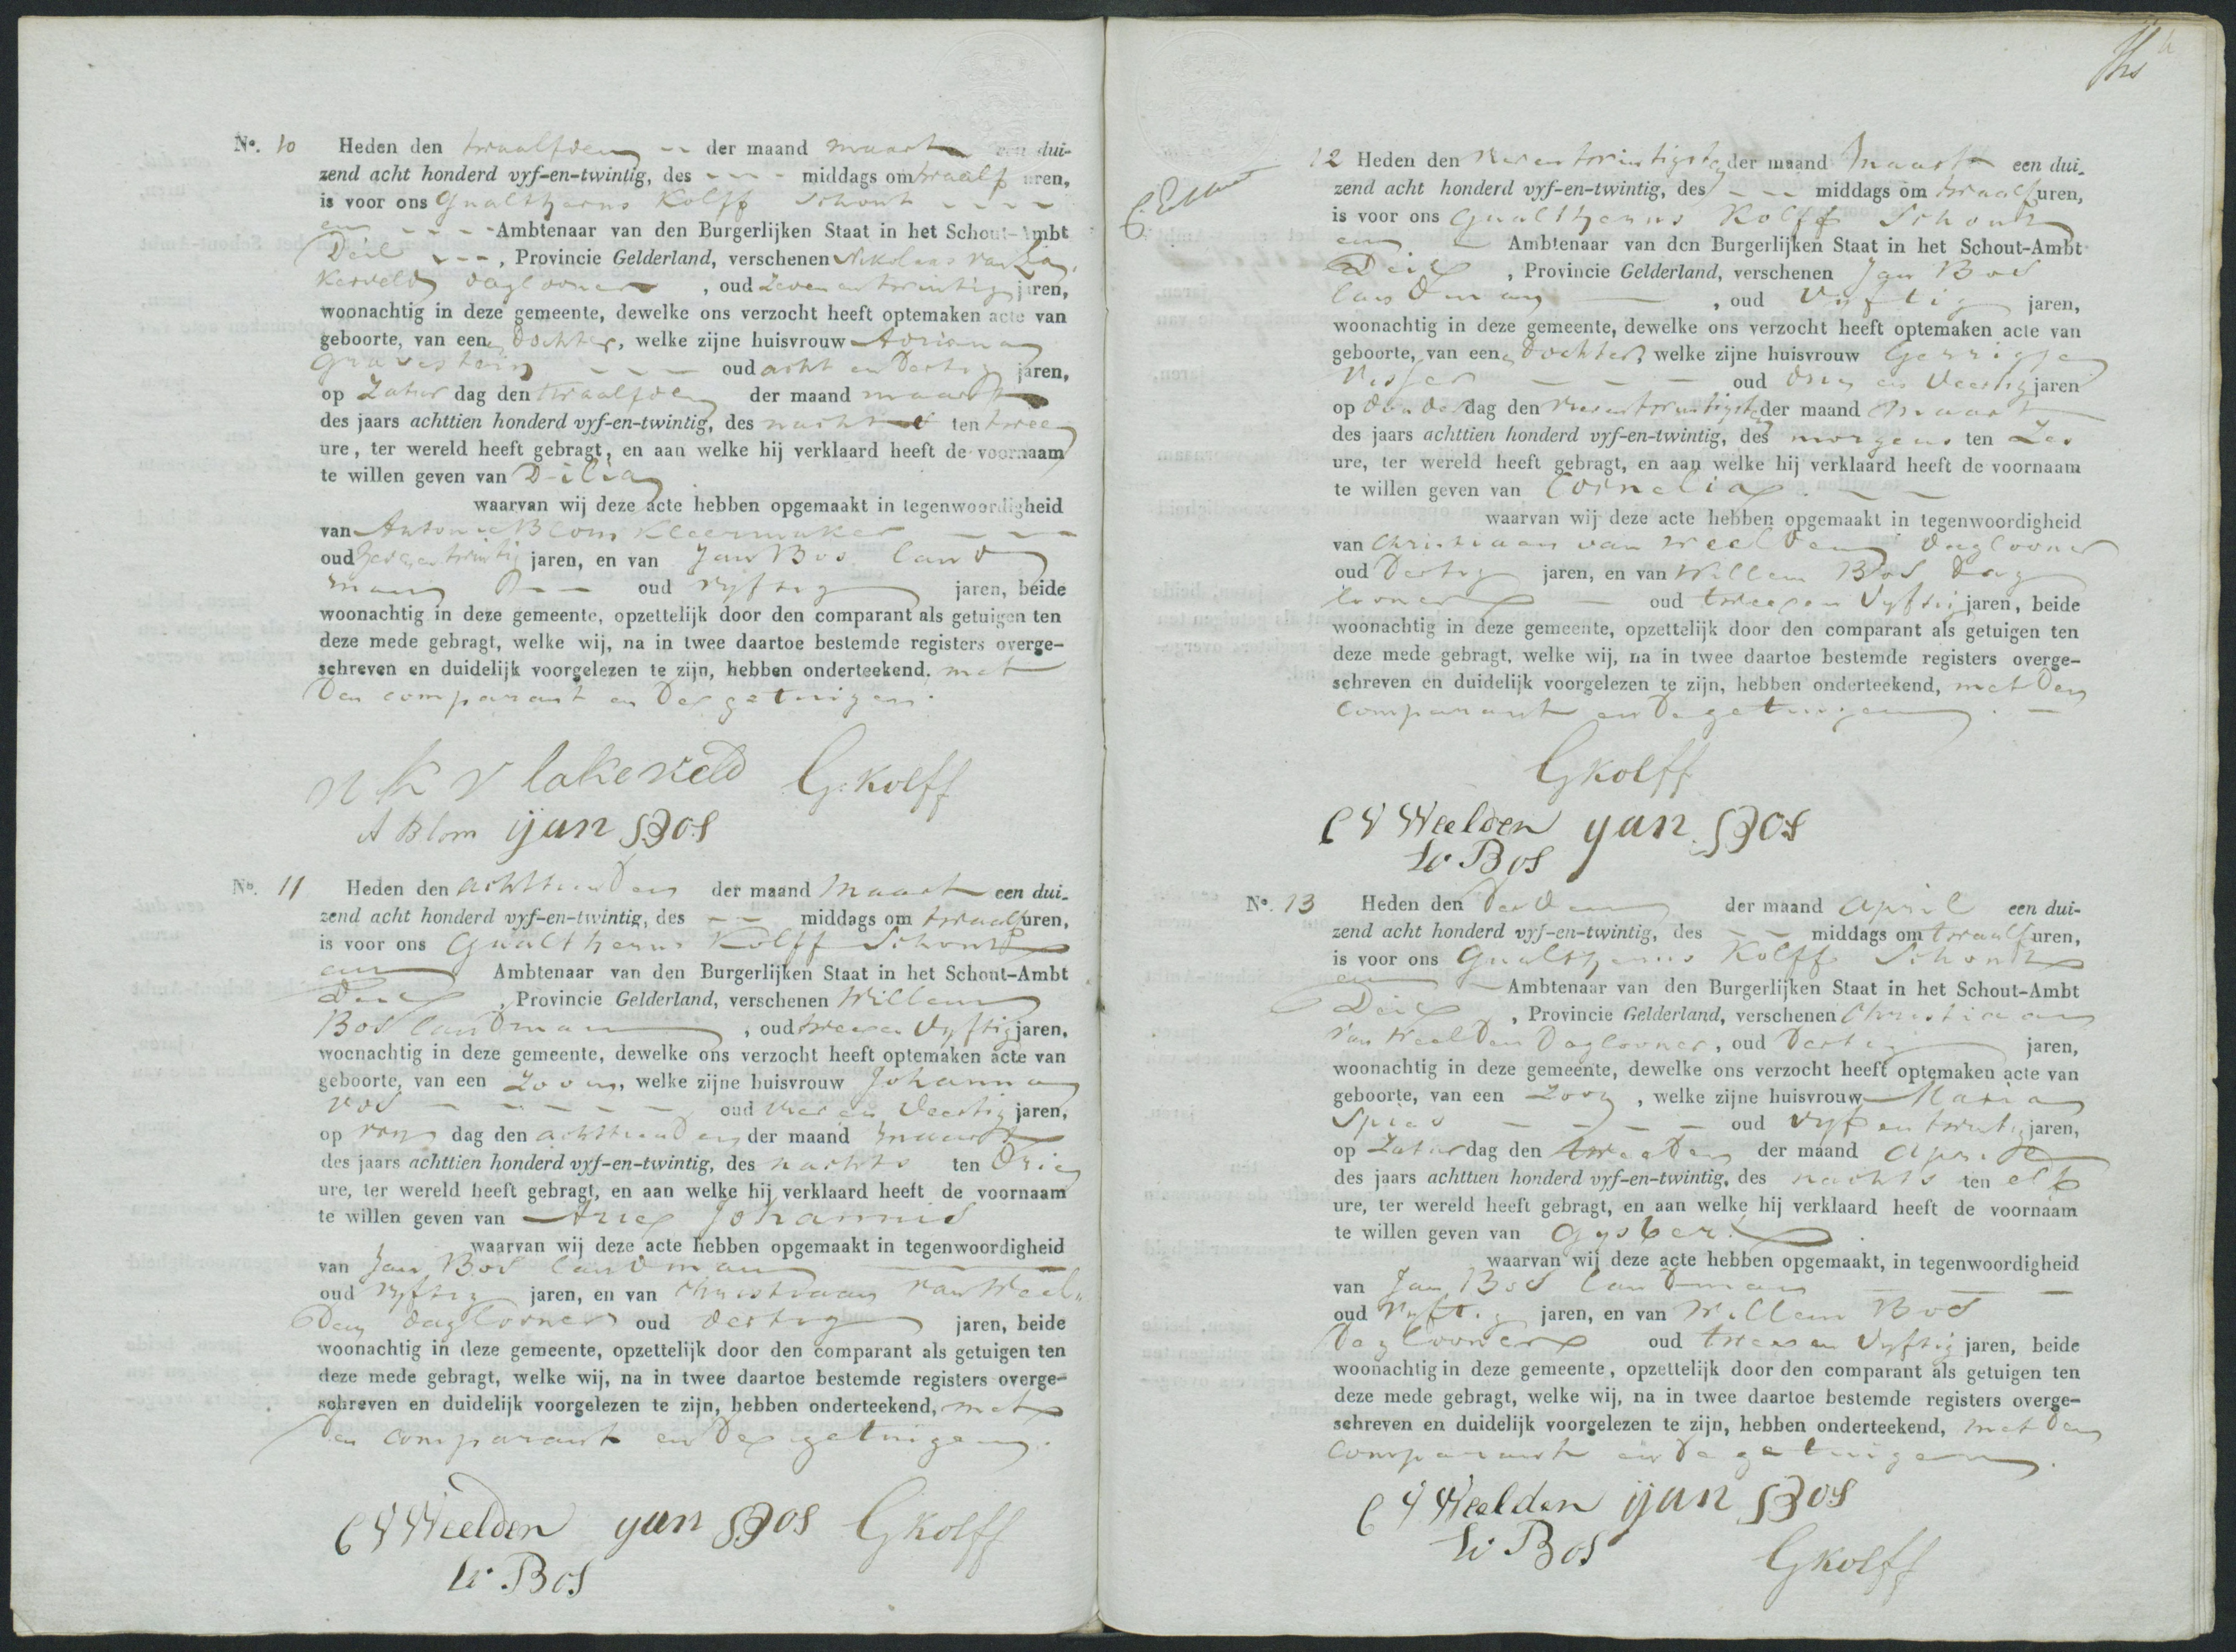 No. 10 Heden den twaalfden -- der maand maart een dui-
zend acht honderd vyf-en-twintig, des --- middags om twaalf uren,
is voor ons Gualtherus Kolff Schout ----
en ---- Ambtenaar van den Burgerlijken Staat in het Schout-Ambt
Deil ---, Provincie Gelderland, verschenen Nikolaas van La-
kerveld daglooner , oud zeven en twintig jaren,
woonachtig in deze gemeente, dewelke ons verzocht heeft optemaken acte van
geboorte, van eene dochter, welke zijne huisvrouw Adriana
Gravestein --- oud acht en dertig jaren,
op Zatur dag den twaalfden der maand maart
des jaars achttien honderd vyf-en-twintig, des nachts ten twee
ure, ter wereld heeft gebragt, en aan welke hij verklaard heeft de voornaam
te willen geven van Dilia
waarvan wij deze acte hebben opgemaakt in tegenwoordigheid
van Antonie Blom Kleermaker ---
oud zes en twintig jaren, en van Jan Bos land
man -- oud vyftig jaren, beide
woonachtig in deze gemeente, opzettelijk door den comparant als getuigen ten
deze mede gebragt, welke wij, na in twee daartoe bestemde registers overge-
schreven en duidelijk voorgelezen te zijn, hebben onderteekend. met
den comparant en de getuigen.
n k v lakerveld G. Kolff
A Blom ijan Bos
No. 11 Heden den achttienden der maand maart een dui-
zend acht honderd vyf-en-twintig, des -- middags om twaalf uren,
is voor ons Gualtherus Kolff Schout
en Ambtenaar van den Burgerlijken Staat in het Schout-Ambt
Deil , Provincie Gelderland, verschenen Willem
Bos landman , oud twee en vyftig jaren,
woonachtig in deze gemeente, dewelke ons verzocht heeft optemaken acte van
geboorte, van een zoon, welke zijne huisvrouw Johanna
Vos ----- oud vier en veertig jaren,
op vry dag den achttienden der maand maart
des jaars achttien honderd vyf-en-twintig, des nachts ten drie
ure, ter wereld heeft gebragt, en aan welke hij verklaard heeft de voornaam
te willen geven van Arie Johannis
waarvan wij deze acte hebben opgemaakt in tegenwoordigheid
van Jan Bos landman
oud vyftig jaren, en van Christiaan van Weel-
den daglooner oud dertig jaren, beide
woonachtig in deze gemeente, opzettelijk door den comparant als getuigen ten
deze mede gebragt, welke wij, na in twee daartoe bestemde registers overge-
schreven en duidelijk voorgelezen te zijn, hebben onderteekend, met
den comparant en de getuigen.
C V Weelden yan Bos GKolff
W. Bos
12 Heden den vierentwintigste der maand Maart een dui-
zend acht honderd vyf-en-twintig, des -- middags om twaalf uren,
is voor ons Gualtherus Kolff Schout
en - Ambtenaar van den Burgerlijken Staat in het Schout-Ambt
Deil , Provincie Gelderland, verschenen Jan Bos
landman , oud vyftig jaren,
woonachtig in deze gemeente, dewelke ons verzocht heeft optemaken acte van
geboorte, van eene dochter, welke zijne huisvrouw Gerrigje
Visser --- oud drie en veertig jaren
op donder dag den vierentwintigste der maand Maart
des jaars achttien honderd vyf-en-twintig, des morgens ten zes
ure, ter wereld heeft gebragt, en aan welke hij verklaard heeft de voornaam
te willen geven van Cornelia. --
waarvan wij deze acte hebben opgemaakt in tegenwoordigheid
van Christiaan van Weelden daglooner
oud dertig jaren, en van Willem Bos dag
looner - oud twee en vyftig jaren, beide
woonachtig in deze gemeente, opzettelijk door den comparant als getuigen ten
deze mede gebragt, welke wij, na in twee daartoe bestemde registers overge-
schreven en duidelijk voorgelezen te zijn, hebben onderteekend, met den
comparant en de getuigen. -
GKolff
C V Weelden yan. Bos
W Bos
No. 13 Heden den derden der maand April een dui-
zend acht honderd vyf-en-twintig, des -- middags om twaalf uren,
is voor ons Gualtherus Kolff Schout
en Ambtenaar van den Burgerlijken Staat in het Schout-Ambt
Deil , Provincie Gelderland, verschenen Christiaan
van Weelden Daglooner, oud dertig jaren,
woonachtig in deze gemeente, dewelke ons verzocht heeft optemaken acte van
geboorte, van een zoon, welke zijne huisvrouw Maria
Spies ---- oud vyf en twintig jaren,
op Zatur dag den tweeden der maand April
des jaars achttien honderd vyf-en-twintig, des nachts ten elf
ure, ter wereld heeft gebragt, en aan welke hij verklaard heeft de voornaam
te willen geven van Gysbert.
waarvan wij deze acte hebben opgemaakt, in tegenwoordigheid
van Jan Bos landman ---
oud vyftig jaren, en van Willem Bos
Daglooner oud twee en vyftig jaren, beide
woonachtig in deze gemeente, opzettelijk door den comparant als getuigen ten
deze mede gebragt, welke wij, na in twee daartoe bestemde registers overge-
schreven en duidelijk voorgelezen te zijn, hebben onderteekend, met den
comparant en de getuigen.
C V Weelden ijan Bos
W Bos GKolff